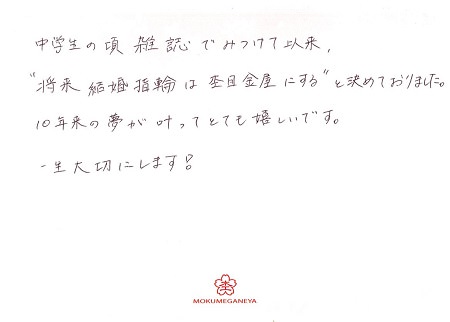 中学生の頃 雑誌でみつけて以来,
"将来 結婚指輪は 杢目金屋にする"と決めておりました。
10年来の夢が叶ってとても嬉しいです。
一生大切にします!
杢
MOKUMEGANEYA